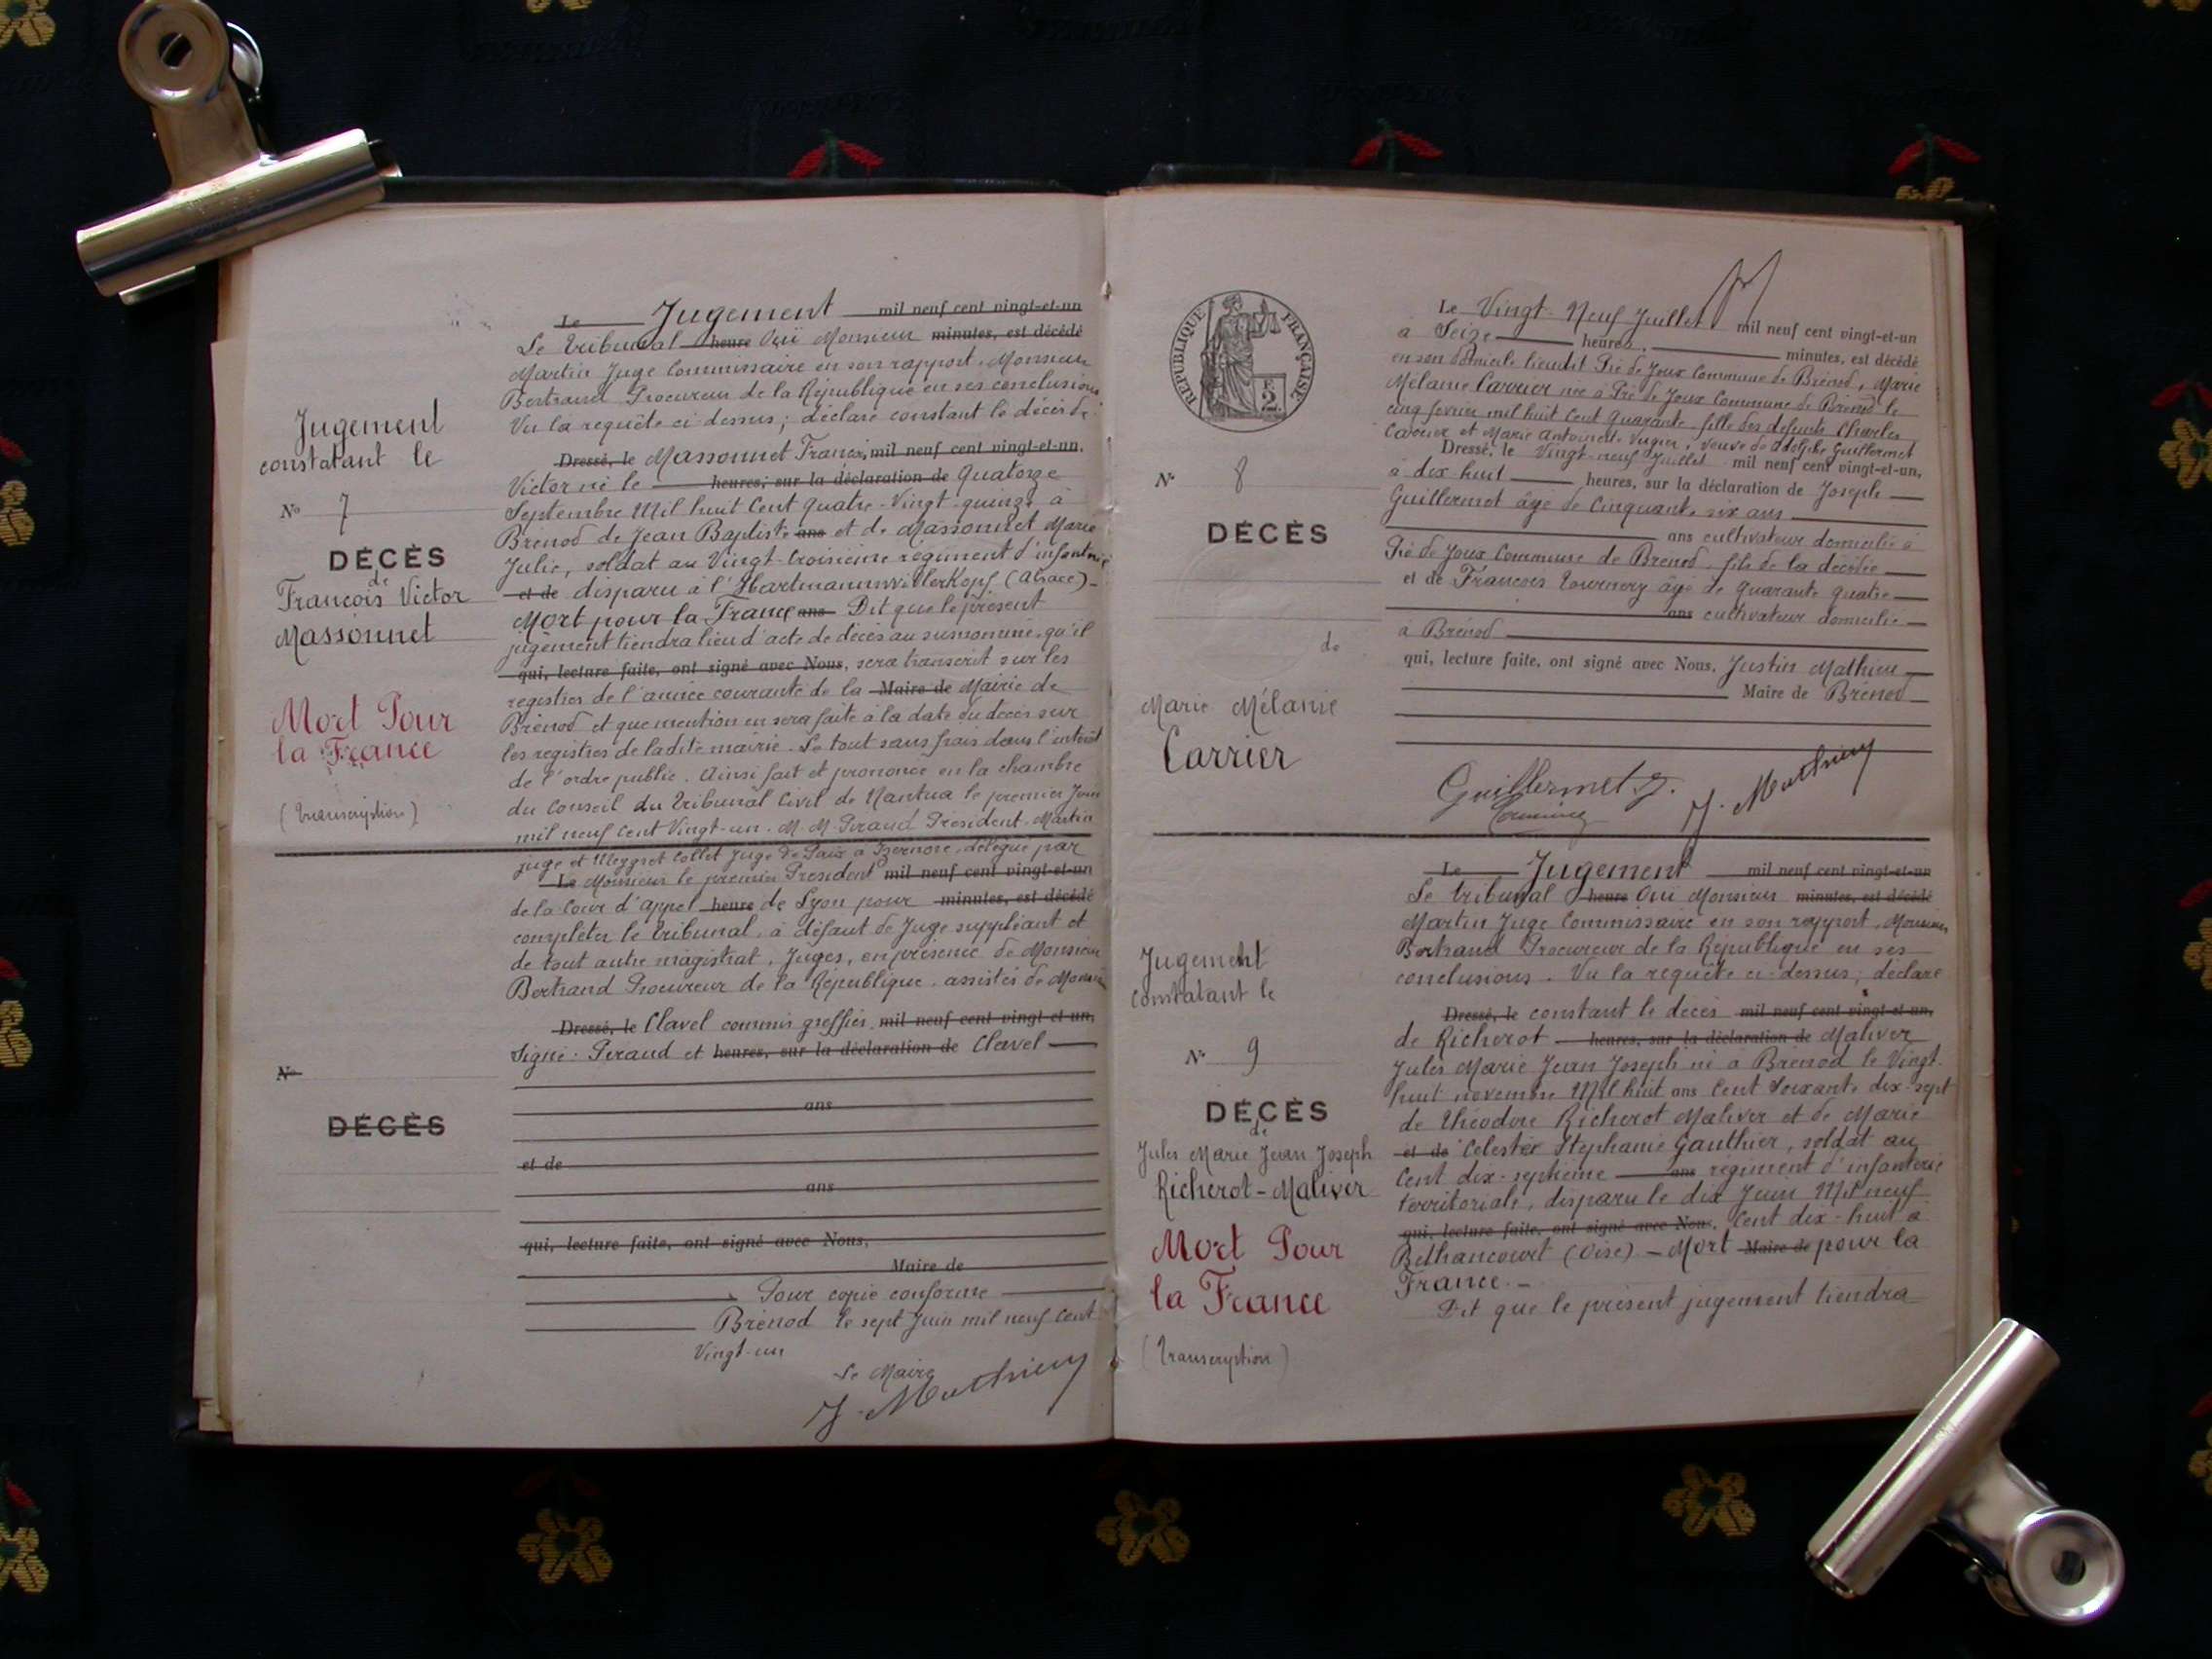 Jugement
constatant le
Nº 7
DÉCÈS
de
François Victor
Massonnet
Mort Pour
la France
(transcription)
Le Jugement mil neuf cent vingt-et-un
Le tribunal heure Ouï Monsieur minutes, est décédé
Martin Juge Commissaire en son rapport. Monsieur
Bertrand Procureur de la République en ses conclusions
Vu la requête ci-dessus; déclare constant le décès de
Dressé, le Massonnet François mil neuf cent vingt-et-un.
Victor né le heures, sur la déclaration de Quatorze
Septembre Mil huit Cent Quatre-Vingt-quinze à
Brénod de Jean Baptiste ans et de Massonnet Marie
Julie, soldat au Vingt-troisième régiment d'infanterie
et de disparu à l'Hartmannwillerkopf (Alsace) -
Mort pour la France ans Dit que le présent
jugement tiendra lieu d'acte de décès au susnommé, qu'il
qui, lecture faite, ont signé avec Nous, sera transcrit sur les
registres de l'année courante de la Maire de Mairie de
Brénod et que mention en sera faite à la date du décès sur
les registres de ladite mairie. Le tout sans frais dans l'intérêt
de l'ordre public. Ainsi fait et prononcé en la chambre
du Conseil du tribunal Civil de Nantua le premier Juin
mil neuf Cent Vingt-un. M. M. Peraud President. Martin
juge et Collet Juge de Paix à Izernore, délégué par
Le Monsieur le premier President mil neuf cent vingt-et-un
de la Cour d'appel heure de Lyon pour minutes, est décédé
completer le tribunal, à défaut de Juge suppléant et
de tout autre magistrat, Juges, en présence de Monsieur
Bertrand Procureur de la République, assistés de Monsieur
Dressé, le Clavel commis greffier. mil neuf cent vingt-et-un,
Signé: Peraud et heures, sur la déclaration de Clavel
Nº
DÉCÈS
ans
et de
ans
qui, lecture faite, ont signé avec Nous,
Maire de
Pour copie conforme
Brénod le sept Juin mil neuf Cent
Vingt-un
Le Maire
J. Mathieu
RÉPUBLIQUE FRANÇAISE
2
Nº 8
DÉCÈS
de
Marie Mélanie
Carrier
Le Vingt-Neuf Juillet mil neuf cent vingt-et-un
à Seize heures, minutes, est décédé
en son domicile lieudit Pré de Joux Commune de Brénod, Marie
Mélanie Carrier née à Pré de Joux Commune de Brénod le
cinq fevrier mil huit Cent Quarante, fille des defunts Charles
Carrier et Marie Antoinette, veuve de Adolphe Guillermet
Dressé, le Vingt-neuf Juillet mil neuf cent vingt-et-un,
à dix huit heures, sur la déclaration de Joseph
Guillermet âgé de Cinquante six ans
ans cultivateur domicilié à
Pré de Joux Commune de Brénod, fils de la décédée
et de François Tournery âgé de quarante quatre
ans cultivateur domicilié
à Brénod
qui, lecture faite, ont signé avec Nous, Justin Mathieu
Maire de Brénod
Guillermet J. J. Mathieu
Jugement
constatant le
Nº 9
DÉCÈS
de
Jules Marie Jean Joseph
Richerot-Maliver
Mort Pour
la France
(transcription)
Le Jugement mil neuf cent vingt-et-un
Le tribunal heure Ouï Monsieur minutes, est décédé
Martin Juge Commissaire en son rapport, Monsieur
Bertrand Procureur de la République en ses
conclusions. Vu la requête ci-dessus; déclare
Dressé, le constant le décès mil neuf cent vingt-et-un,
de Richerot heures, sur la déclaration de Maliver
Jules Marie Jean Joseph né à Brénod le Vingt-
huit novembre Mil huit ans Cent Soixante dix-sept
de Théodore Richerot Maliver et de Marie
et de Celestée Stephanie Gauthier, soldat au
Cent dix-septième ans régiment d'infanterie
territoriale, disparu le dix Juin Mil neuf
qui, lecture faite, ont signé avec Nous, Cent dix-huit à
Bethancourt (Oise) - Mort Maire de pour la
France. -
Dit que le présent jugement tiendra